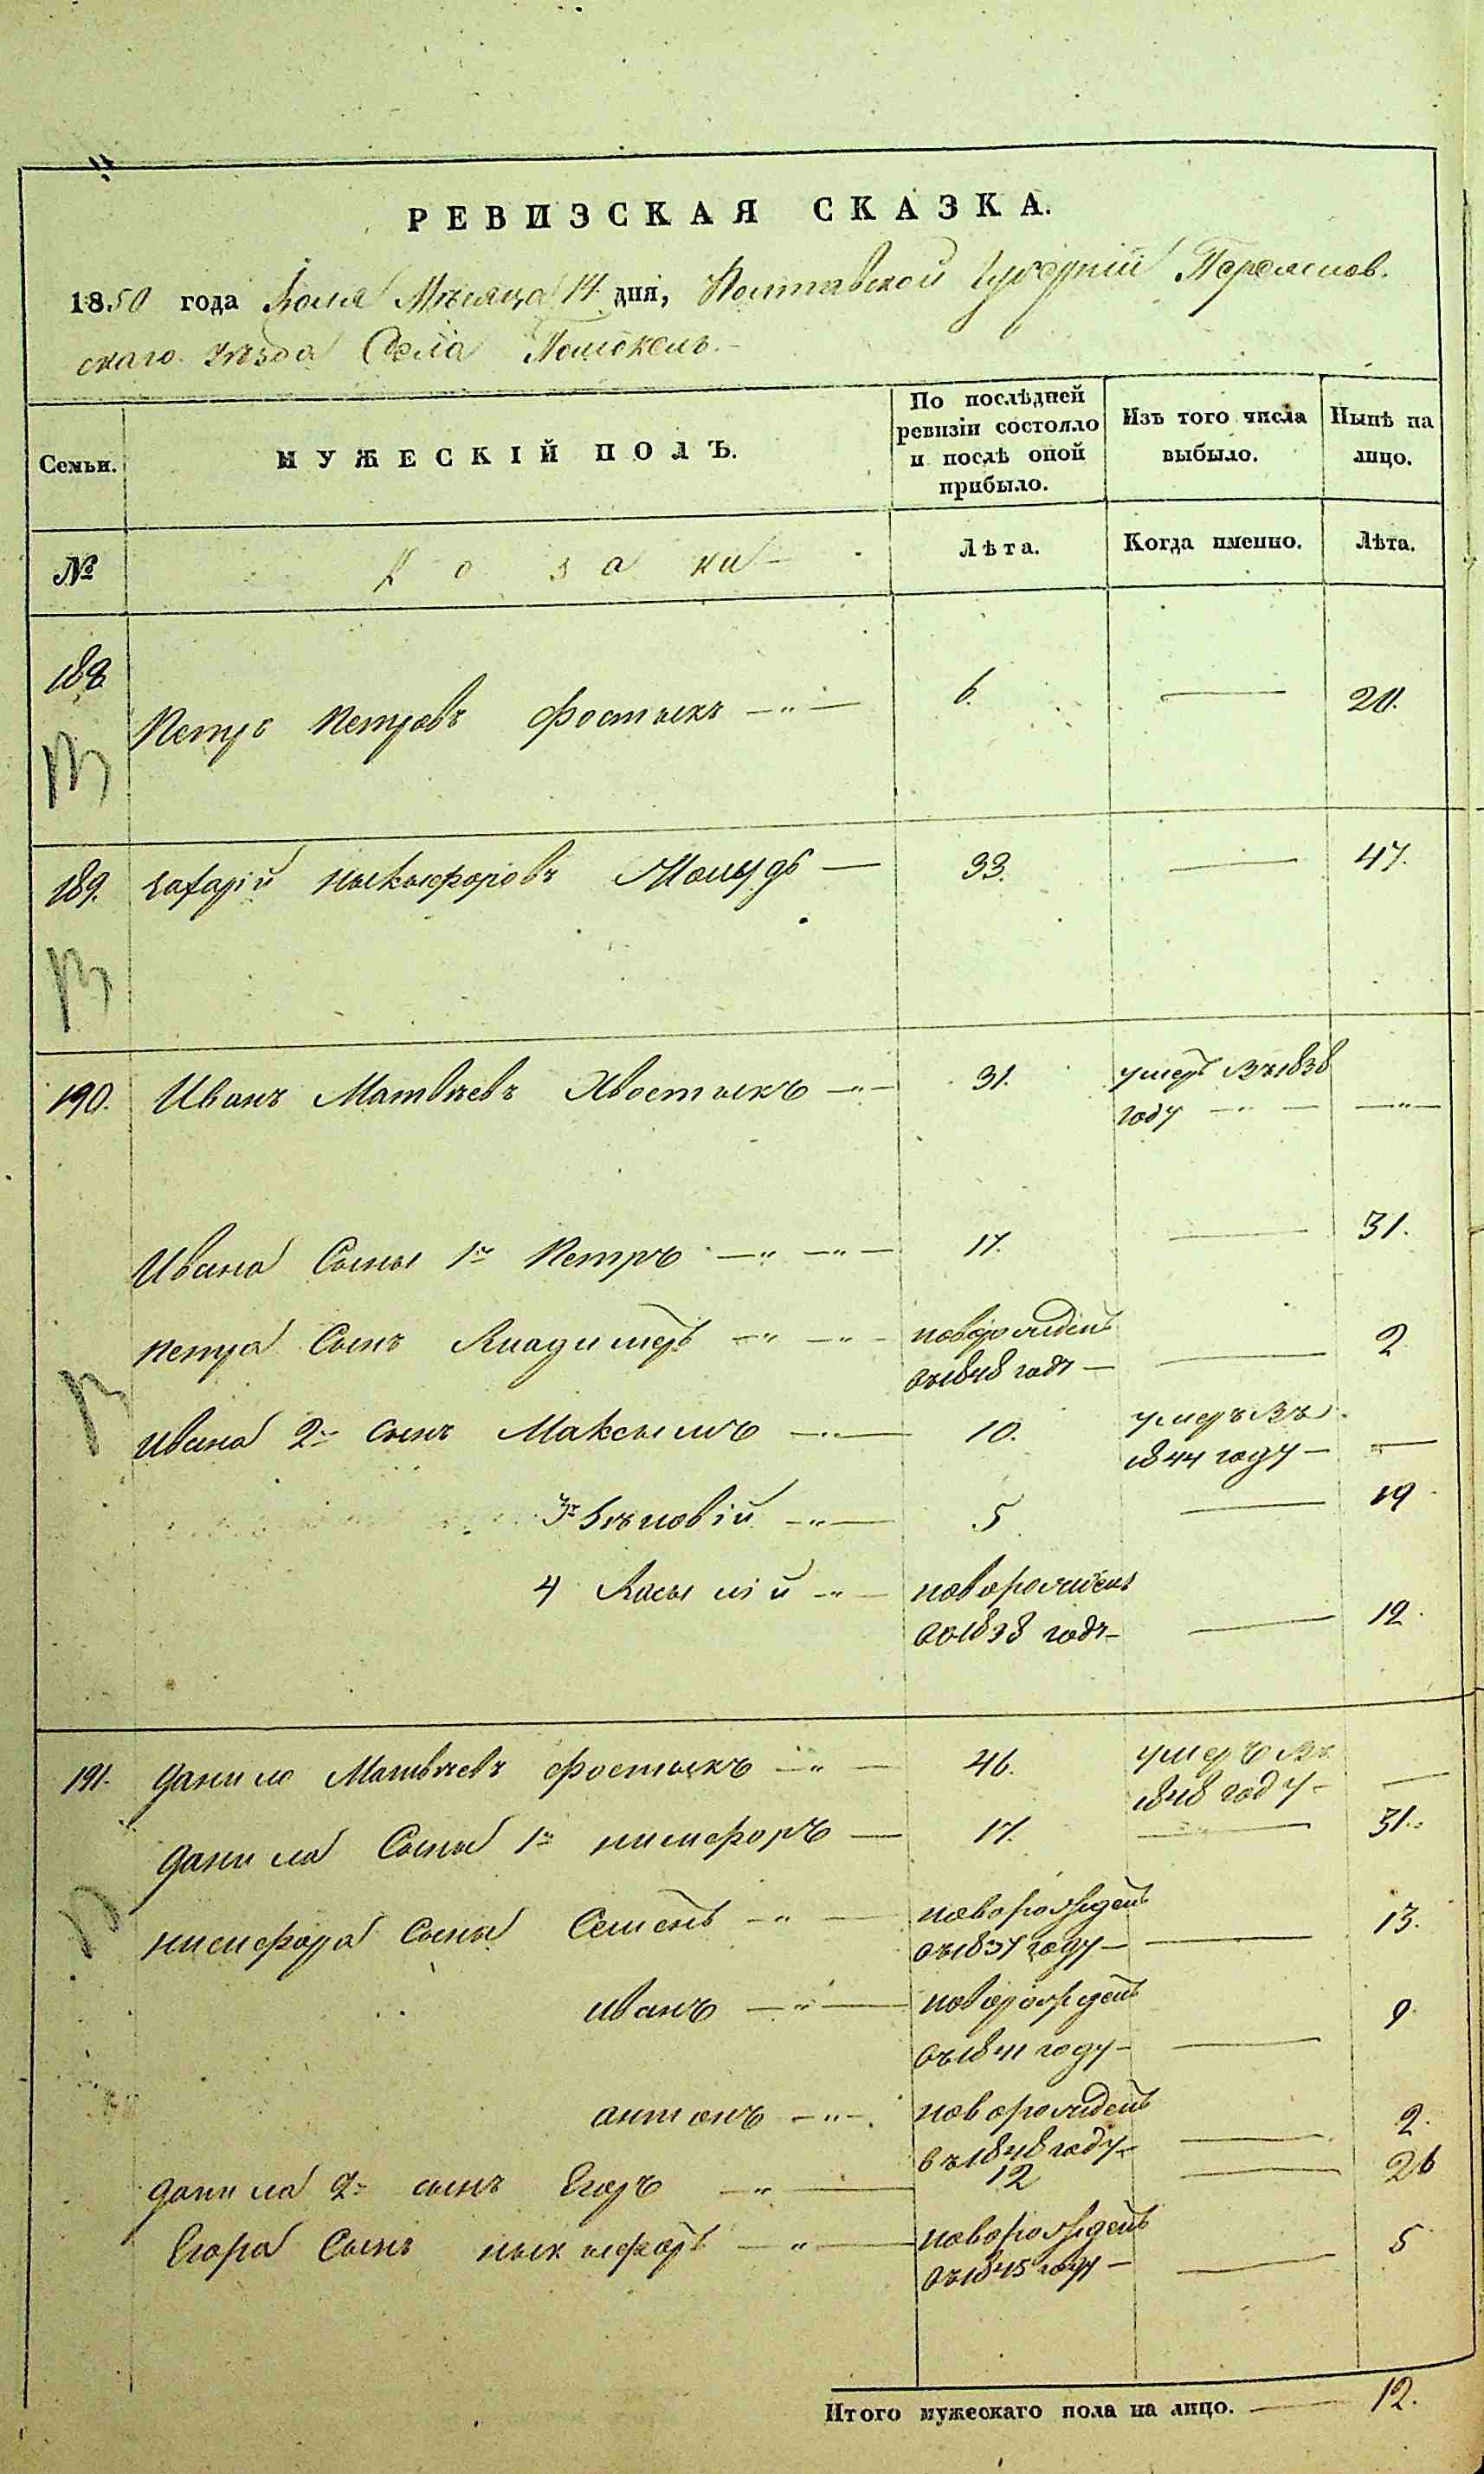 РЕВИЗСКАЯ СКАЗКА.
1850 года Юля Мѣсяца 14 дня, Полтавской Губерній Переяслов.
скаго уѣзда Села Помокель.
Семьи.
МУЖЕСКІЙ ПОЛЪ.
По послѣдней ревизіи состояло и послѣ оной прибыло.
Изъ того числа выбыло.
Нынѣ на лицо.
№
Козаки
Лѣта.
Когда именно.
Лѣта.
188
Петръ Петровъ Фостыкъ 6. 20.
189. Захарій Ныкыфоровъ 33. 47.
190. Иванъ Матвѣевъ Хвостыкъ 31. умеръ въ 1838
году
Ивана Сыны 1й Петръ 17. 31.
Петра Сынъ Владимеръ новорожденъ
въ 1848 годъ 2
Ивана 2й сынъ Максымъ 10. умеръ въ
1844 году
3й 5 19
4 Васылій новорожденъ
въ 1838 годъ 12
191. Данило Матвѣевъ Фостыкъ 46. умеръ въ
1848 году
Данила Сына 1й никифоръ 17. 31.
никифора Сына Семенъ новорожденъ
въ 1837 году 13.
иванъ новорожденъ
въ 1841 году 9
антонъ новорожденъ
въ 1848 году 2.
Данила 2й сынъ Егоръ 12 26
Егора Сынъ ныкыфоръ новорожденъ
въ 1845 году 5
Итого мужескаго пола на лицо. 12.